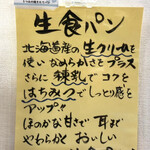 生食パン
北海道産の生クリームを
使い なめらかさをプラス
さらに練乳でコクを
はちみつでしっとり感と
アップ!!
ほのかな甘さで 耳まで
やわらかく おいしい